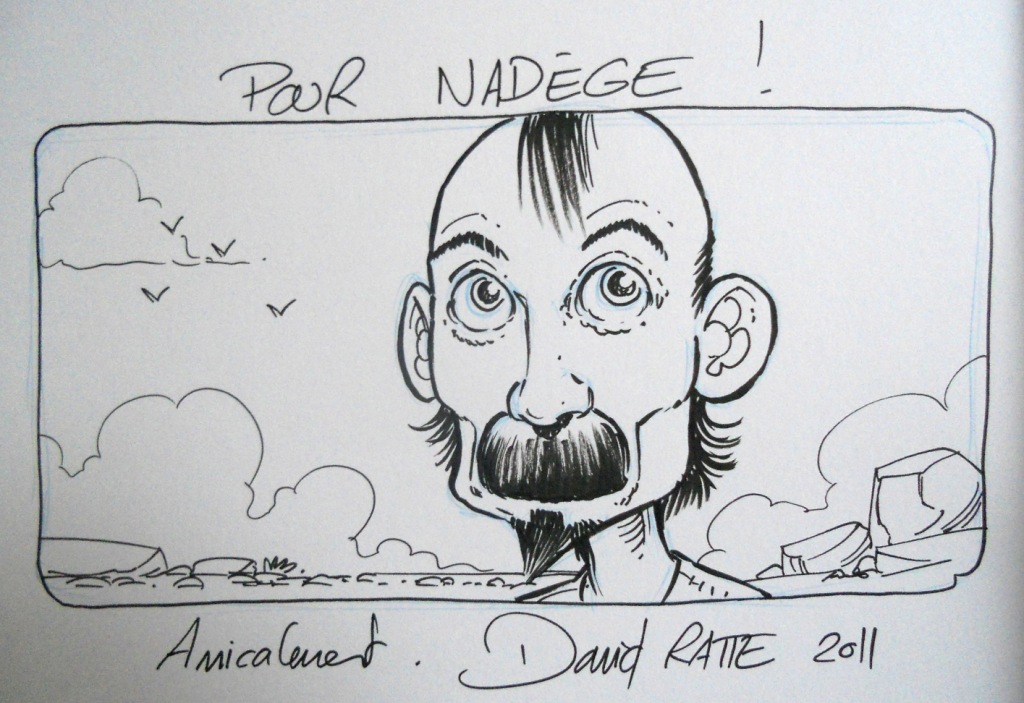 POUR NADÈGE !
Amicalement. David RATTE 2011